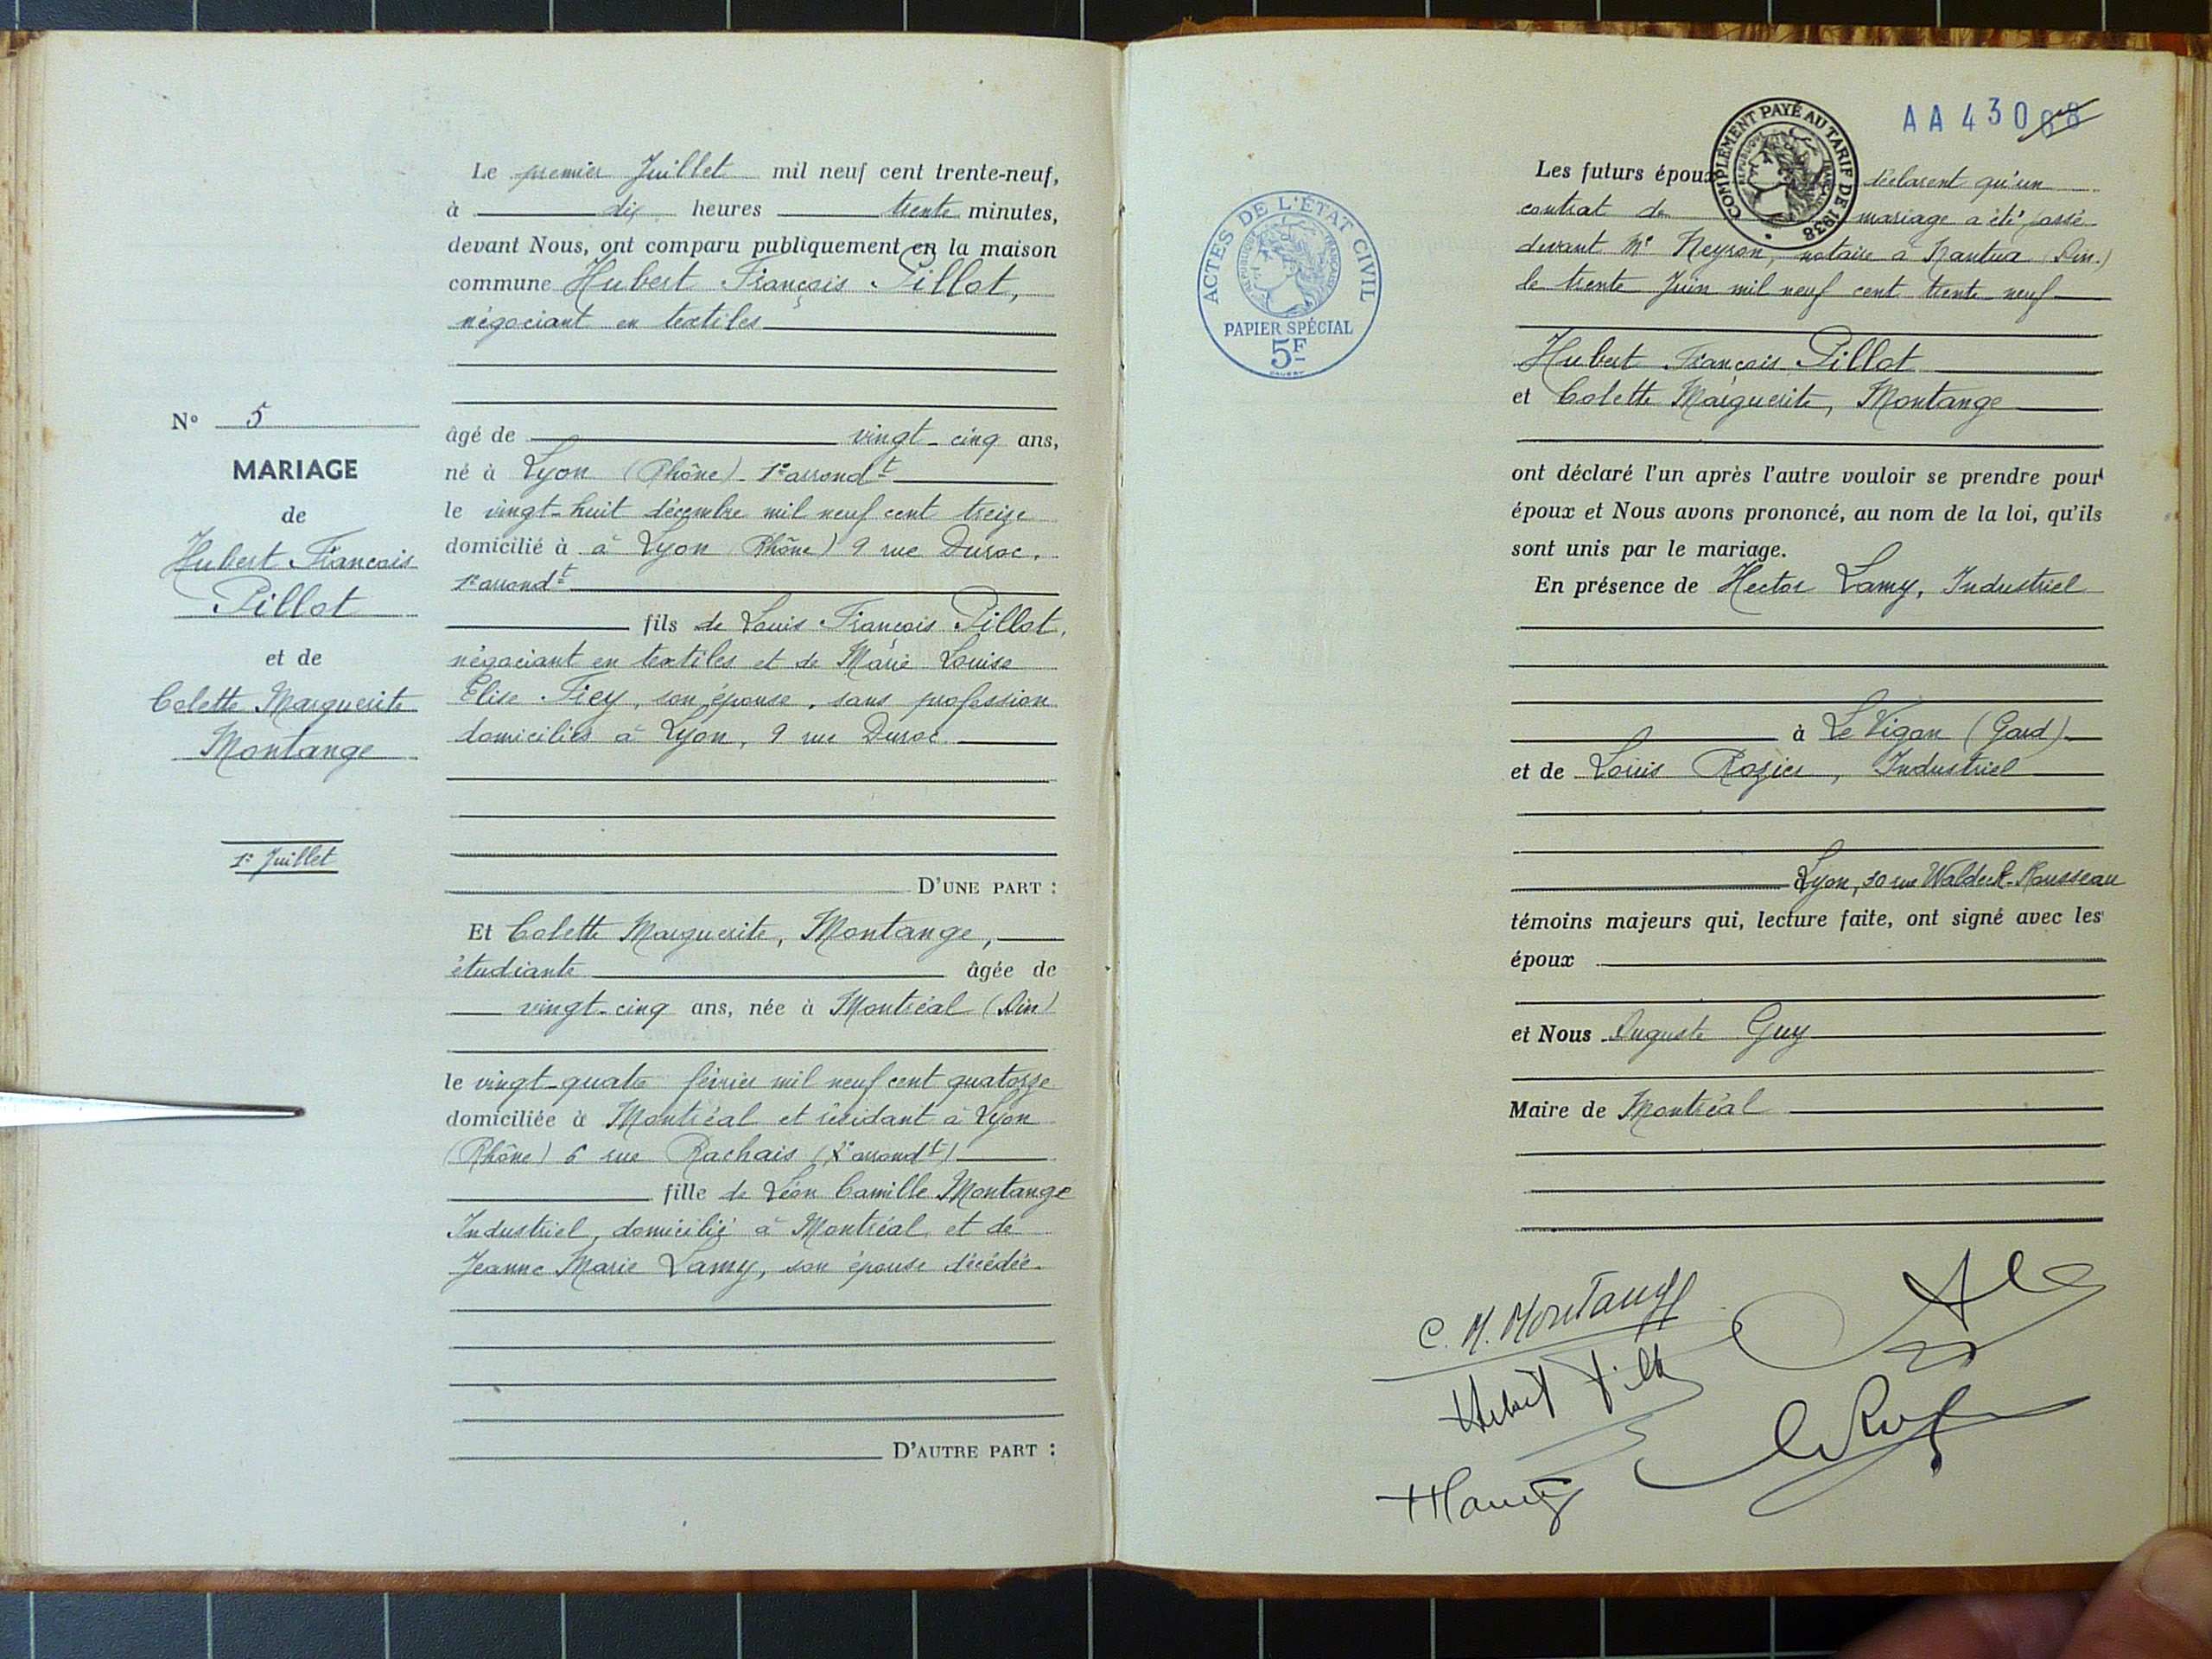 N° 5
MARIAGE
de
Hubert François
Pillot
et de
Colette Marguerite
Montange
1er Juillet
Le premier Juillet mil neuf cent trente-neuf,
à dix heures trente minutes,
devant Nous, ont comparu publiquement en la maison
commune Hubert François Pillot,
négociant en textiles
âgé de vingt-cinq ans,
né à Lyon (Rhône) 1er arrondt
le vingt-huit décembre mil neuf cent treize
domicilié à à Lyon (Rhône) 9 rue Duroc.
1er arrondt
fils de Louis François Pillot,
négociant en textiles et de Marie Louise
Elise Fiey, son épouse, sans profession
domiciliés à Lyon, 9 rue Duroc.
D'UNE PART :
Et Colette Marguerite, Montange,
étudiante âgée de
vingt-cinq ans, née à Montréal (Ain)
le vingt-quatre février mil neuf cent quatorze
domiciliée à Montréal et résidant à Lyon
(Rhône) 6 rue Rachais (arrondt)
fille de Léon Camille Montange
Industriel, domicilié à Montréal, et de
Jeanne Marie Lamy, son épouse décédée.
D'AUTRE PART :
ACTES DE L'ÉTAT CIVIL
RÉPUBLIQUE FRANÇAISE
PAPIER SPÉCIAL
5F
AA 43068
COMPLÉMENT PAYÉ AU TARIF DE 1938
RÉPUBLIQUE FRANÇAISE
Les futurs époux déclarent qu'un
contrat de mariage a été passé
devant Me Neyron, notaire à Nantua (Ain.)
le trente Juin mil neuf cent trente neuf
Hubert François Pillot
et Colette Marguerite, Montange
ont déclaré l'un après l'autre vouloir se prendre pour
époux et Nous avons prononcé, au nom de la loi, qu'ils
sont unis par le mariage.
En présence de Hector Lamy, Industriel
à Le Vigan (Gard)
et de Louis Rozier, Industriel
Lyon, 10 rue Waldeck-Rousseau
témoins majeurs qui, lecture faite, ont signé avec les
époux
et Nous Auguste Guy
Maire de Montréal
C. M. Montange
Hubert Pillot
HLamy